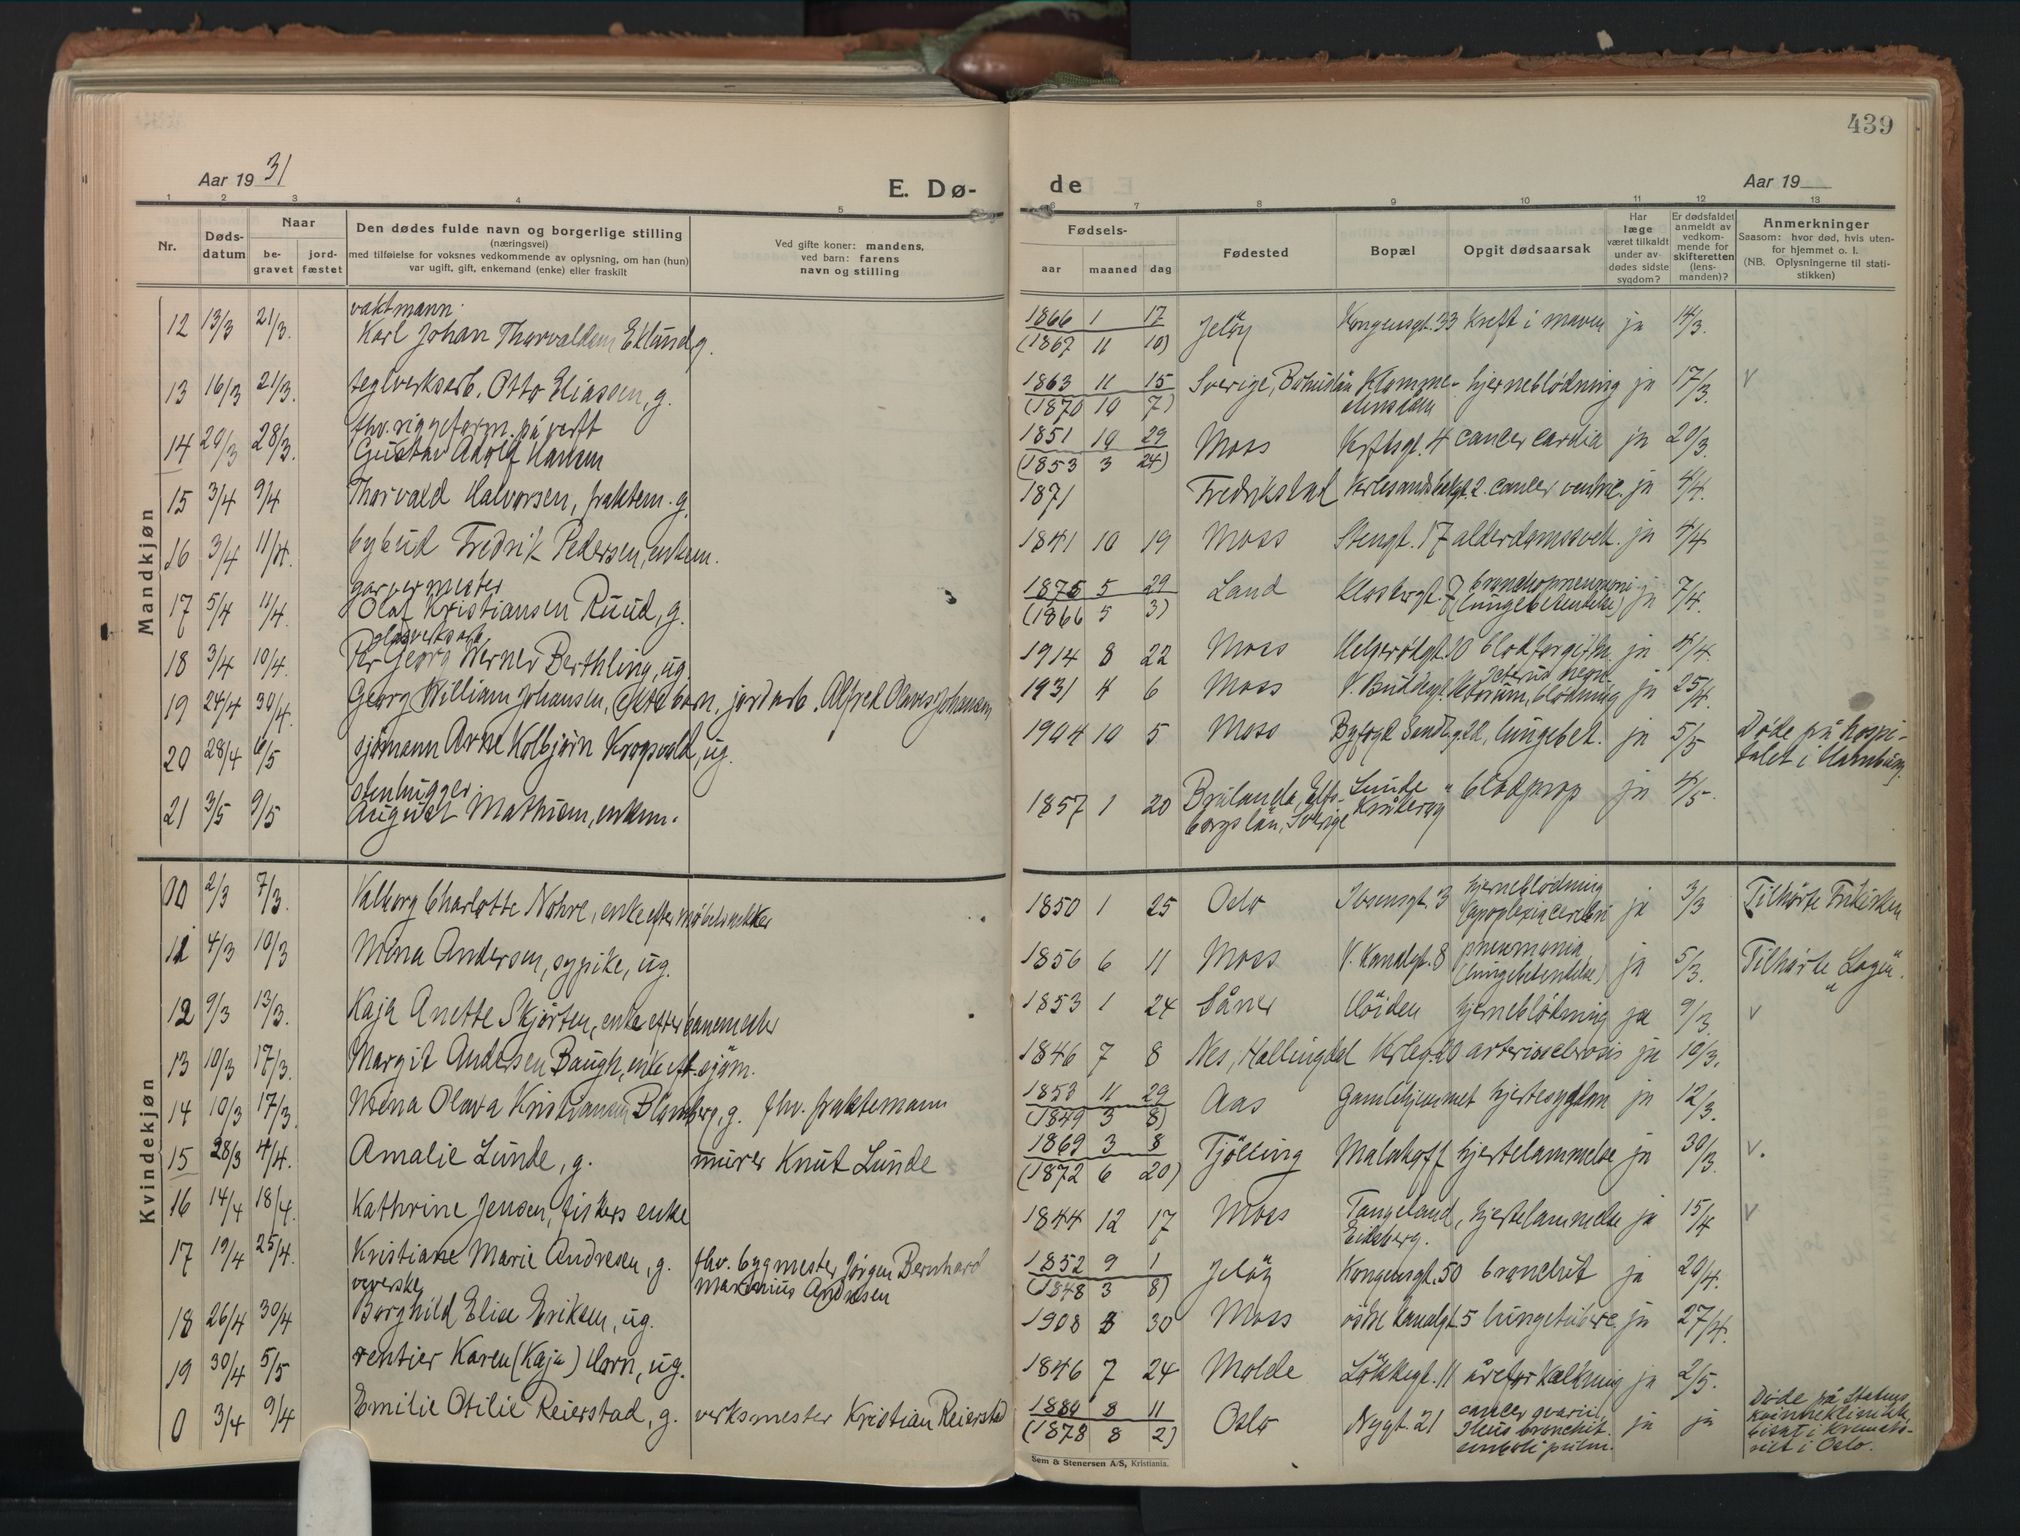 439
Aar 1931
E. Dø-
de
Aar 19
1 2 3 4 5 6 7 8 9 10 11 12 13
Nr.
Døds-
datum
Naar
be-
gravet
jord-
fæstet
Den dødes fulde navn og borgerlige stilling
(næringsvei)
med tilføielse for voksnes vedkommende av oplysning, om han (hun)
var ugift, gift, enkemand (enke) eller fraskilt
Ved gifte koner: mandens,
ved barn: farens
navn og stilling
Fødsels-
aar maaned dag
Fødested
Bopæl
Opgit dødsaarsak
Har
læge
været tilkaldt
under av-
dødes sidste
sygdom?
Er dødsfaldet
anmeldt av
vedkom-
mende for
skifteretten
(lens-
manden)?
Anmerkninger
Saasom: hvor død, hvis uten-
for hjemmet o. l.
(NB. Oplysningerne til stati-
stikken)
Mandkjøn
vaktmann
12 13/3 21/3. Karl Johan Thorvaldsen Eklund g. 1866 1 17 Jeløy Kongensgt. 33 kreft i maven ja 14/3.
(1867 11 10)
13 16/3 21/3. teglverksarb. Otto Eliassen, g. 1863 11 15 Sverige, Bohuslän Klomme- hjerneblødning ja 17/3. v
(1870 10 7)
thv. riggeform. på verft
14 20/3 28/3. Gustav Adolf Hansen 1851 10 29 Moss Verftsgt. 4 cancer cardia ja 20/3.
(1853 3 24)
15 3/4 9/4 Thorvald Halvorsen, fraktem. g. 1871 Fredrikstad 2. cancer ventric. ja 4/4.
16 3/4 11/4. bybud Fredrik Pedersen, enkem. 1841 10 19 Moss Stengt. 17 alderdomssvek. ja 4/4
garvermester
17 5/4 11/4. Olaf Kristiansen Ruud, g. 1875 5 29 Land 7 bronchopneumoni ja 7/4.
(1866 5 3) (lungebetendelse)
glasverksarb.
18 3/4 10/4. Per Georg Werner Berthling, ug. 1914 8 22 Moss Helgerødgt. 10 blodforgiftn. ja 4/4.
19 24/4 30/4. Georg William Johansen, ekte barn, jordarb. Alfred Olaves Johansen 1931 4 6 Moss V. Buddegt. blødning ja 25/4.
20 28/4 6/5 sjømann Arne Kolbjørn Krogsvold, ug. 1904 10 5 Moss lungebet. ja 5/5 Døde på hospi-
talet i Hamburg.
stenhugger
21 3/5 9/5 August Mathisen, enkem. 1857 1 20 Brålanda, Elfs- Lunde " blodprop ja 4/5.
borgslän, Sverige Kråkereg
Kvindekjøn
10 2/3 7/3. Valborg Charlotte Nohre, enke efter møbelsnekker 1850 1 25 Oslo Ibsensgt. 3 hjerneblödning ja 3/3 Tilhørte Frikirken
(apoplexia cerebri
11 4/3 10/3 Mina Andersen, sypike, ug. 1856 6 11 Moss V. Kanalgt. 8 pneumonia ja 5/3. Tilhørte "Logen".
(lungebetendelse)
12 9/3 13/3. Kaja Anette Skjørten, enke efter banemester 1853 1 24 Såner Höiden hjerneblödning ja 9/3. v
13 10/3 17/3. Margit Andersen Baugh, enke eft. sjøm. 1846 7 8 Nes, Hallingdal Krleg. 20 arteriosclerosis ja 10/3.
14 10/3 17/3. Mina Olava Kristiansen Blomberg, g. fhv. fraktemann 1853 11 29 Aas Gamlehjemmet hjertesygdom ja 12/3.
(1849 3 8)
15 28/3 4/4. Amalie Lunde, g. murer Knut Lunde 1869 3 8 Tjölling Malakoff hjertelammelse ja 30/3. v.
(1872 6 20)
16 14/4 18/4. Kathrine Jensen, fiskers enke 1844 12 17 Moss Tangeland, hjertelammelse ja 15/4 v
Eidsberg.
17 19/4 25/4. Kristiane Marie Andresen, g. fhv. bygmester Jørgen Bernhard 1852 9 1 Jeløy Kongensgt. 50 bronchit ja 20/4.
Marenius Andresen (1848 3 8)
veverske
18 26/4 30/4 Borghild Elise Eriksen, ug. 1908 30 Moss østre Kanalgt. 5 lungetuberc. ja 27/4.
19 30/4 5/5 rentier Karen (Kaja) Horn, ug. 1846 7 24 Molde Løkkegt. 11 åreforkalkning ja 2/5.
0 3/4 9/4 Emilie Otilie Reierstad, g. verksmester Kristian Reierstad 1880 8 11 Oslo Nygt. 21 cancer ovarii, ja ja Døde på Statens
(1878 8 2) Ileus bronchit. Kvinneklinikk,
emboli pulm. bisat i Kremato-
riet i Oslo.
Sem & Stenersen A/S, Kristiania.